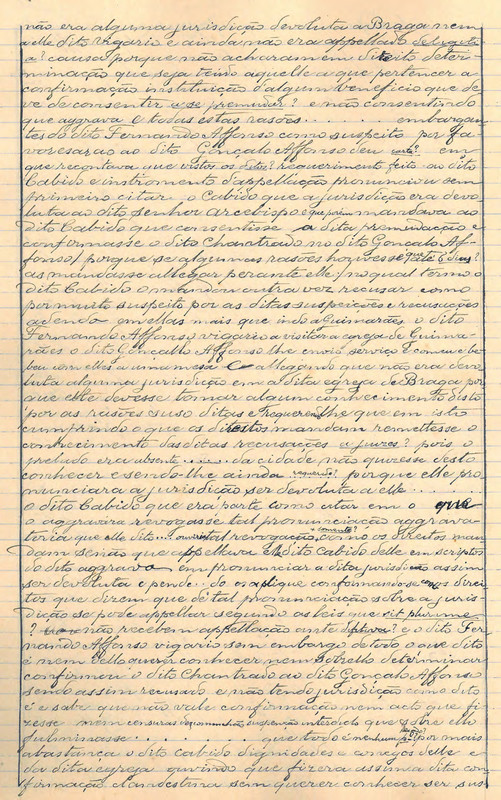 não era alguma jurisdição devoluta a Braga nem
a elle dito Vigario e ainda não era appellado delegata
a? causa? porque não acharam em direito deter-
minação que seja tendo aquelle a que pertencer a
confirmação instituição d'algum beneficio que de-
ve de consentir a se premudar? e não consentindo
que aggrava e todas estas rasões . . . . . . embargan-
tes do dito Fernando Affonso como suspeito por fa-
voresar ao dito Gonçalo Affonso deu carta? em
que recontava que vistos os ditos? requerimento feito ao dito
Cabido e instromento d'appellação pronunciou sem
primeiro citar o Cabido que a jurisdição era devo-
luta ao dito senhor arcebispo e que porém mandava ao
dito Cabido que consentisse a dita premudação e
confirmasse o dito Chantrado no dito Gonçalo Af-
fonso / porque se algumas rasões houvesse que até 6 dias?
as mandasse allegar perante elle / no qual termo o
dito Cabido o mandou outra vez recusar como
por muito suspeito por as ditas suspeições e recusações
adendo em ellas mais que indo a Guimarães o dito
Fernando Affonso vigario a visitar a egreja de Guima-
rães o dito Gonçallo Affonso lhe enviou serviço e comeu e be-
beu com elles a uma mesa e allegando que não era devo-
luta alguma jurisdição em a dita egreja de Braga por
que elle devesse tomar algum conhecimento disto
por as rasões suso ditas e requerendo lhe que em isto
cumprindo o que os direitos mandam remettesse o
conhecimento das ditas recusações a juizes? pois o
prelado era absente . . . . da cidade não quizesse desto
conhecer e sendo-lhe ainda requerido? porque elle pro-
nunciara a jurisdição ser devoluta a elle . . . . .
o dito Cabido que era parte como citar em o que
o aggravara revogasse tal pronunciação aggrava-
toria que elle dito . . tal revogação como os direitos man-
dam senão que appellava elle dito cabido delle em scriptos
do dito aggravo em pronunciar a dita jurisdição assim
ser devoluta e pende . . do o aplique confirmando-se com os direi-
tos que dizem que de tal pronunciação sobre a juris-
dição se pode appellar segundo as leis que sit plurume
? não recebem appellação ante diptiva? e o dito Fer-
nando Affonso vigario sem embargo de todo o que dito
é nem ello querer conhecer nem sobrello determinar
confirmou o dito Chantrado ao dito Gonçalo Affonso
sendo assim recusado e não tendo jurisdição como dito
é e sabe que não vale confirmação nem acto que fi-
zesse nem censuras excommunhão suspensão interdicto que sobre ello
fulminasse . . . . . . . que todo é nenhum por mais
abastança o dito cabido dignidades e conegos delle e
da dita egreja ouvindo que fizera assim a dita con-
firmação clandestina sem querer conhecer ser sus